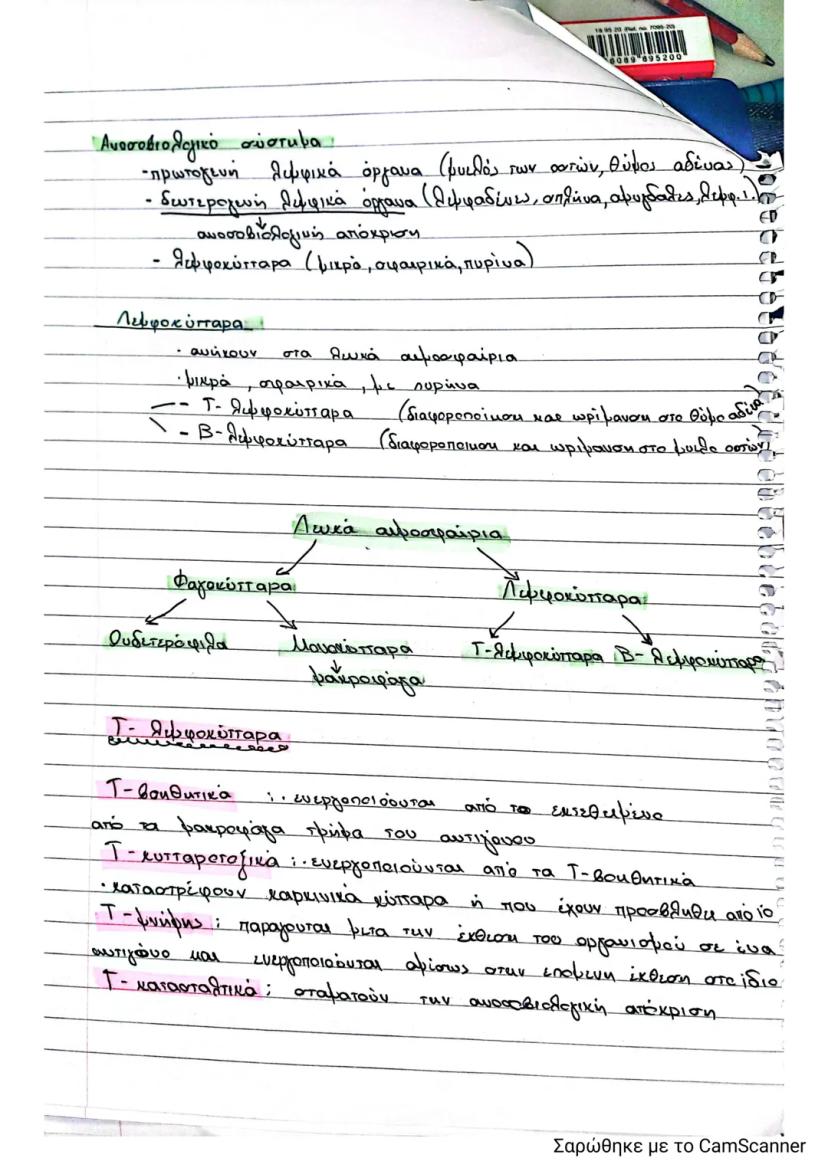 18 95 20 (Ref. no. 7098-20)
6089 895200
Ανοσοβιολογικό σύστημα:
-πρωτογενή λεμφικά όργανα (μυελός των οστών, θύμος αδένας)
- δευτερογενή λεμφικά όργανα (λεμφαδένες, σπλήνα, αμυγδαλές, λεμφ. ι.)
ανοσοβιολογική απόκριση
- λεμφοκύτταρα (μικρά, σφαιρικά, πυρήνα)
Λεμφοκύτταρα:
· ανήκουν στα λευκά αιμοσφαίρια
· μικρά, σφαιρικά, με πυρήνα
- Τ- λεμφοκύτταρα (διαφοροποίηση και ωρίμανση στο θύμο αδένα)
- Β- λεμφοκύτταρα (διαφοροποίηση και ωρίμανση στο μυελό οστών)
Λευκά αιμοσφαίρια
Φαγοκύτταρα Λεμφοκύτταρα
Ουδετερόφιλα Μονοκύτταρα Τ-λεμφοκύτταρα Β- λεμφοκύτταρα
μακροφάγα
Τ- λεμφοκύτταρα
Τ-βοηθητικά : · ενεργοποιούνται από το εκτεθειμένο
από τα μακροφάγα τμήμα του αντιγόνου
Τ-κυτταροτοξικά : · ενεργοποιούνται από τα Τ-βοηθητικά
· καταστρέφουν καρκινικά κύτταρα ή που έχουν προσβληθεί από ιό
Τ- μνήμης : παράγονται μετα την έκθεση του οργανισμού σε ένα
αντιγόνο και ενεργοποιούνται αμέσως στην επόμενη έκθεση στο ίδιο
Τ- κατασταλτικά : σταματούν την ανοσοβιολογική απόκριση
Σαρώθηκε με το CamScanner